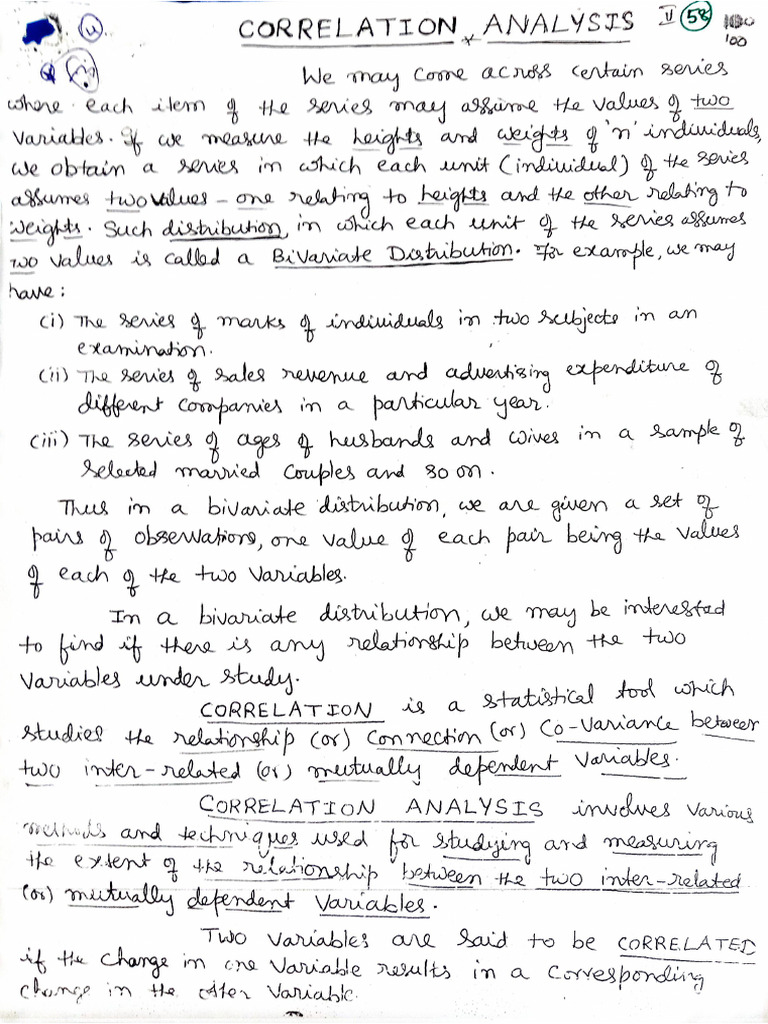 CORRELATION ANALYSIS II 58 100
100
We may come across certain series
where each item of the series may assume the values of two
variables. If we measure the heights and weights of 'n' individuals,
we obtain a series in which each unit (individual) of the series
assumes two values - one relating to heights and the other relating to
weights. Such distribution, in which each unit of the series assumes
two values is called a Bivariate Distribution. For example, we may
have:
(i) The series of marks of individuals in two subjects in an
examination.
(ii) The series of sales revenue and advertising expenditure of
different companies in a particular year.
(iii) The series of ages of husbands and wives in a sample of
selected married couples and so on.
Thus in a bivariate distribution, we are given a set of
pairs of observations, one value of each pair being the values
of each of the two variables.
In a bivariate distribution, we may be interested
to find if there is any relationship between the two
variables under study.
CORRELATION is a statistical tool which
studies the relationship (or) connection (or) Co-variance between
two inter-related (or) mutually dependent variables.
CORRELATION ANALYSIS involves various
methods and techniques used for studying and measuring
the extent of the relationship between the two inter-related
(or) mutually dependent variables.
Two variables are said to be CORRELATED
if the change in one variable results in a corresponding
change in the other variable.